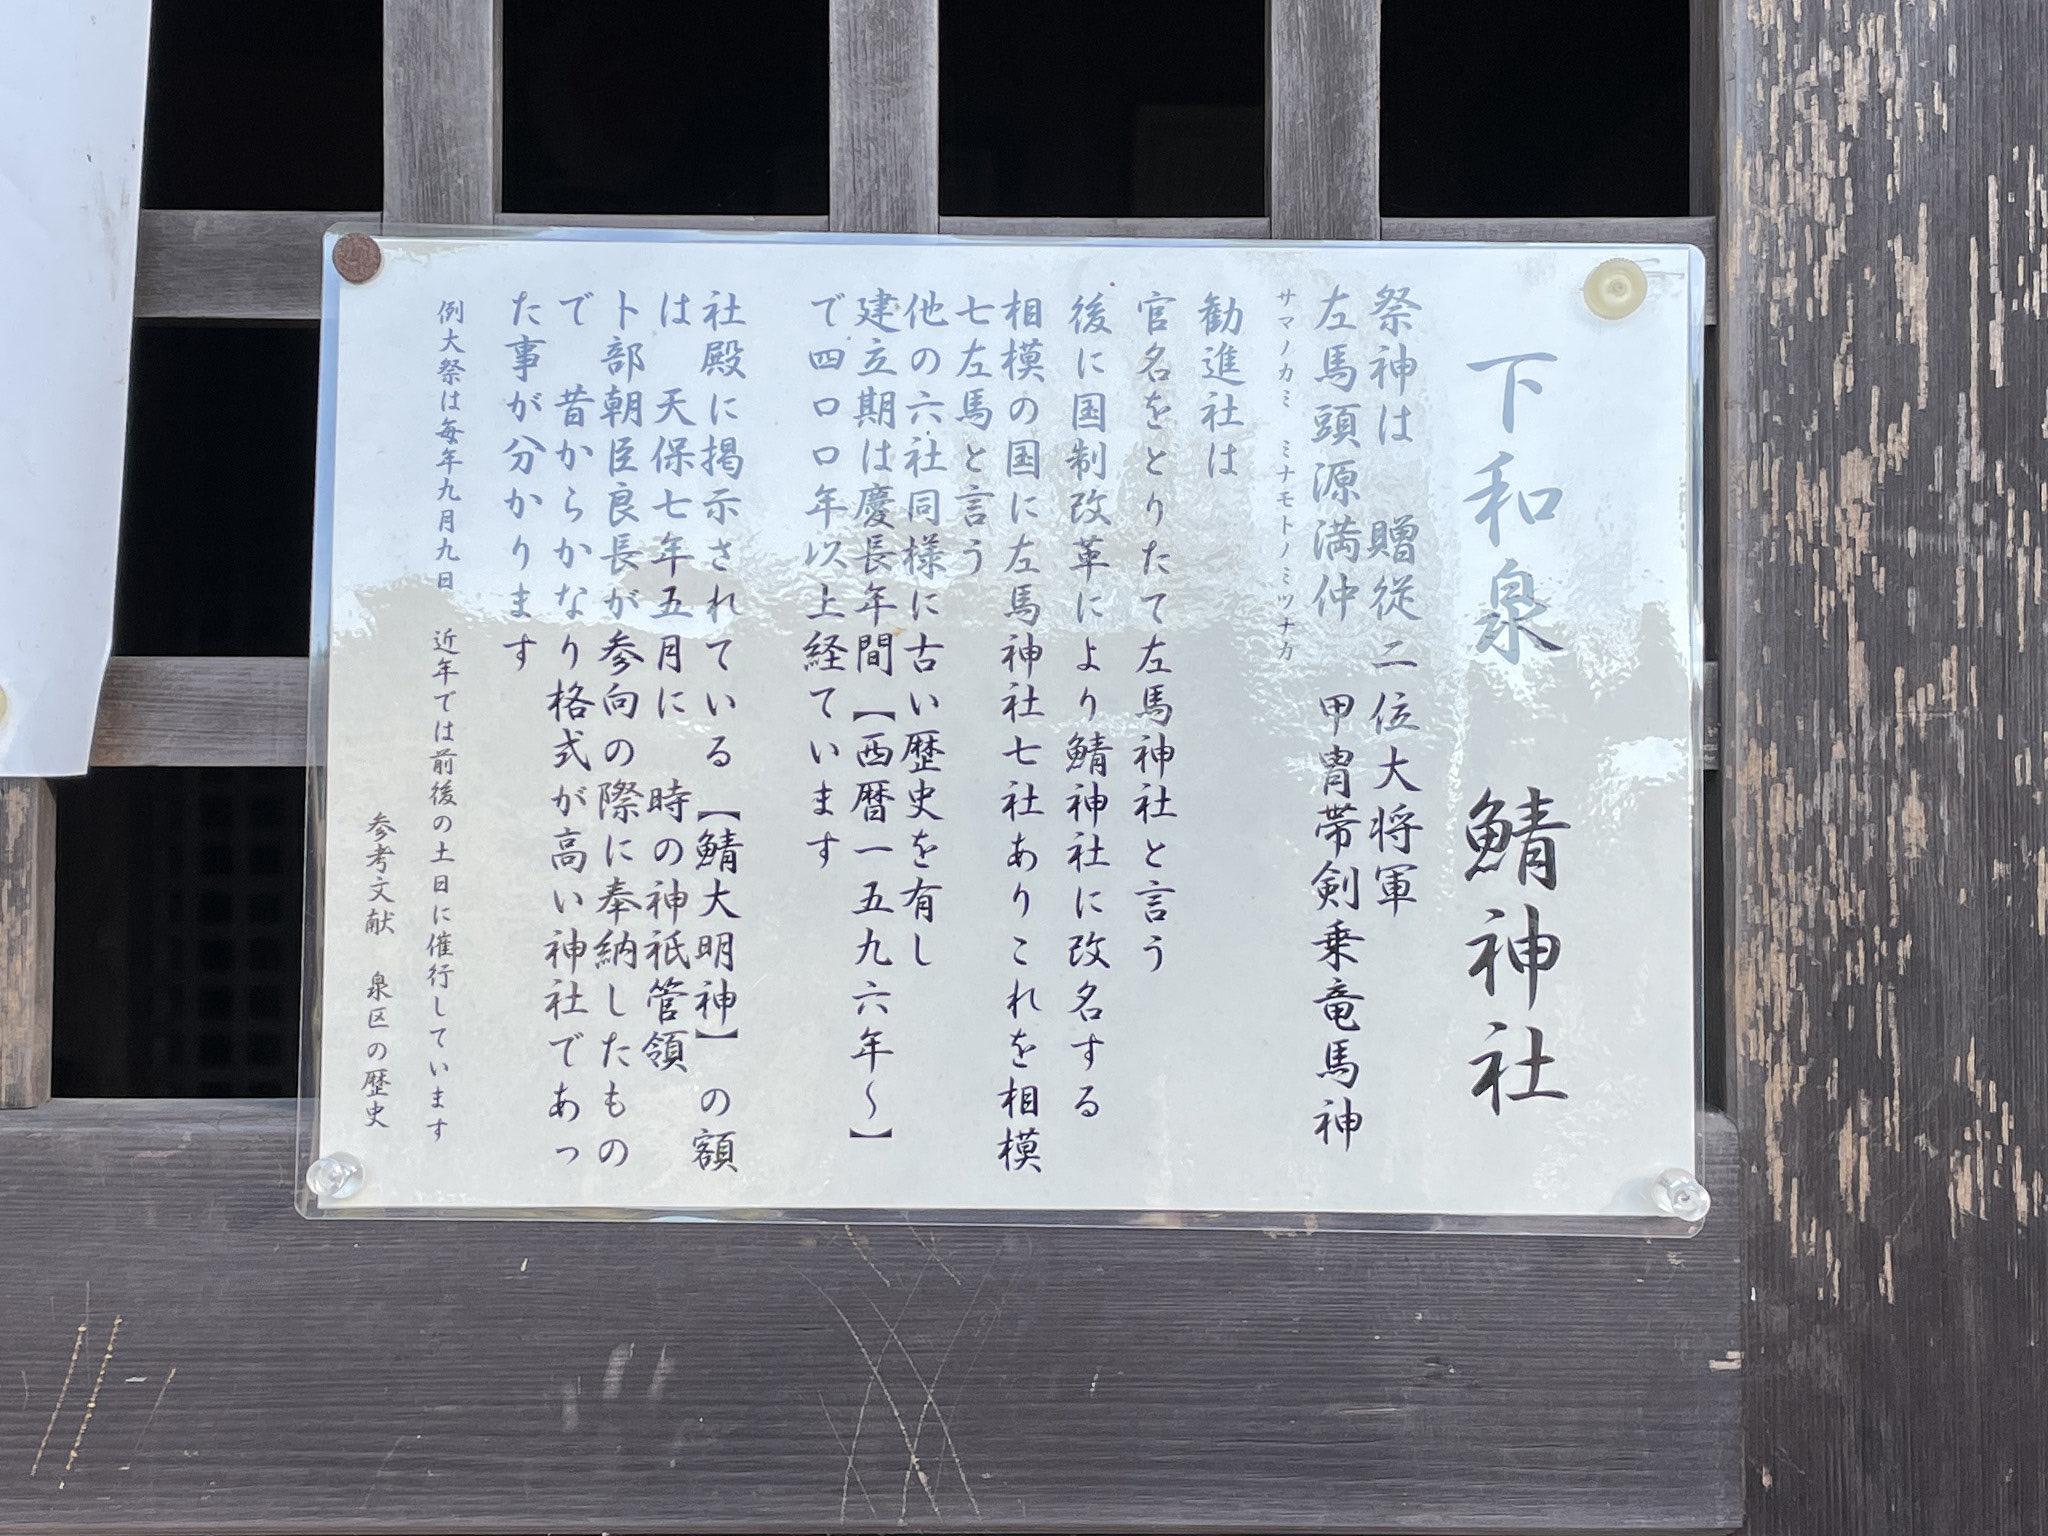 下和泉　鯖神社
祭神は　贈従二位大将軍
左馬頭源満仲　甲冑帯剣乗竜馬神
サマノカミ　ミナモトノミツナカ
勧進社は
官名をとりたて左馬神社と言う
後に国制改革により鯖神社に改名する
相模の国に左馬神社七社ありこれを相模
七左馬と言う
他の六社同様に古い歴史を有し
建立期は慶長年間【西暦一五九六年～】
で四ロロ年以上経ています
社殿に掲示されている【鯖大明神】の額
は　天保七年五月に　時の神祇管領
卜部朝臣良長が参向の際に奉納したもの
で　昔からかなり格式が高い神社であっ
た事が分かります
例大祭は毎年九月九日　近年では前後の土日に催行しています
参考文献　泉区の歴史